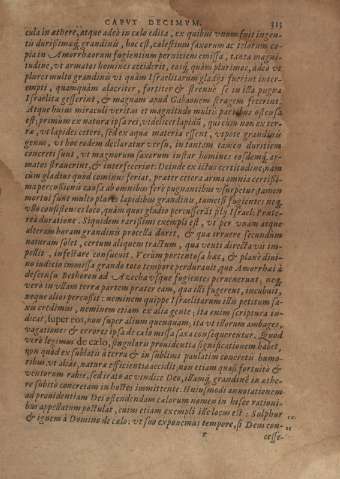 CAPVT DECIMVM. 313
cula in æthere, atque adeò in cælo edita, ex quibus vnum fuit ingen-
tu durissimæq; grandinis, hoc est, cælestium saxorum ac telorum co-
pia in Amorrhæorum fugientium perniciem emissa, tanta magni-
tudine, vt armatos homines occiderit, eosq; quàm plurimos, adeò vt
plures multo grandinis vi quàm Israelitarum gladijs fuerint inter-
empti, quamquàm alacriter, fortiter & strenuè se in illa pugna
Israelitæ gesserint, & magnam apud Gabaonem stragem fecerint.
Atque huius miraculi veritas et magnitudo multis partibus ostensa
est: primùm ex natura ipsa rei, videlicet lapidū, qui cum non ex ter-
ra, vt lapides ceteri, sed ex aqua materia essent, vtpote grandinis
genus, vt hoc eodem declaratur versu, in tantam tamen duritiem
concreti sunt, vt magnorum saxorum instar homines eosdemq; ar-
matos strauerint, & interfecerint. Deinde ex ictus certitudine, nam
cùm gladius quod cominus feriat, præter cetera arma omnia certissi-
ma percussionis causa ab omnibus ferè pugnantibus vsurpetur, tamen
mortui sunt multo plures lapidibus grandinis, iumetsi fugientes neq;
vllo consistentes loco, quàm quos gladio percusserāt filij Israel. Præte-
rea duratione. Siquidem rarissimi exempli est, vt per vnam atque
alteram horam grandinis procella duret, & quæ irruere secundum
naturam solet, certum aliquem tractum, qua venti directa vis im-
pellit, infestare consueuit. Verùm portentosa hæc, & planè diui-
no iudicio immissa grando toto tempore perdurauit quo Amorrhæi à
descensu Bethoron ad Azecha vsque fugientes peruenerunt; neq;
verò in vllam terræ partem præter eam, qua illi fugerent, incubuit,
neque alios percussit: neminem quippe Israelitarum illis petitum sa-
xis credimus, neminem etiam ex alia gente; ita enim scriptura in-
dicat, super eos, non super alium quenquam; ita vt illorum ambages,
vagationes & errores ipsa de cælo missa saxa consequerentur. Quod
verò legimus de cælo, singularis prouidentiæ significationem habet,
non quod ex sublata à terra & in sublimis paulatim concreti humo-
ribus, vt aliàs, naturæ efficientia accidit, non etiam quasi fortuitò &
ventorum rabie, sed irato ac vindice Deo, illamq; grandinē in æthe-
re subitò concretam in hostes immittente. Huiusmodi annotationem
ad prouidentiam Dei ostendendam cælorum nomen in hisce rationi-
bus appellatum postulat, cuius etiam exempli ille locus est: Sulphur
& ignem à Domino de cælo. vt suo exponemus tempore, si Deus con-
r cesse-